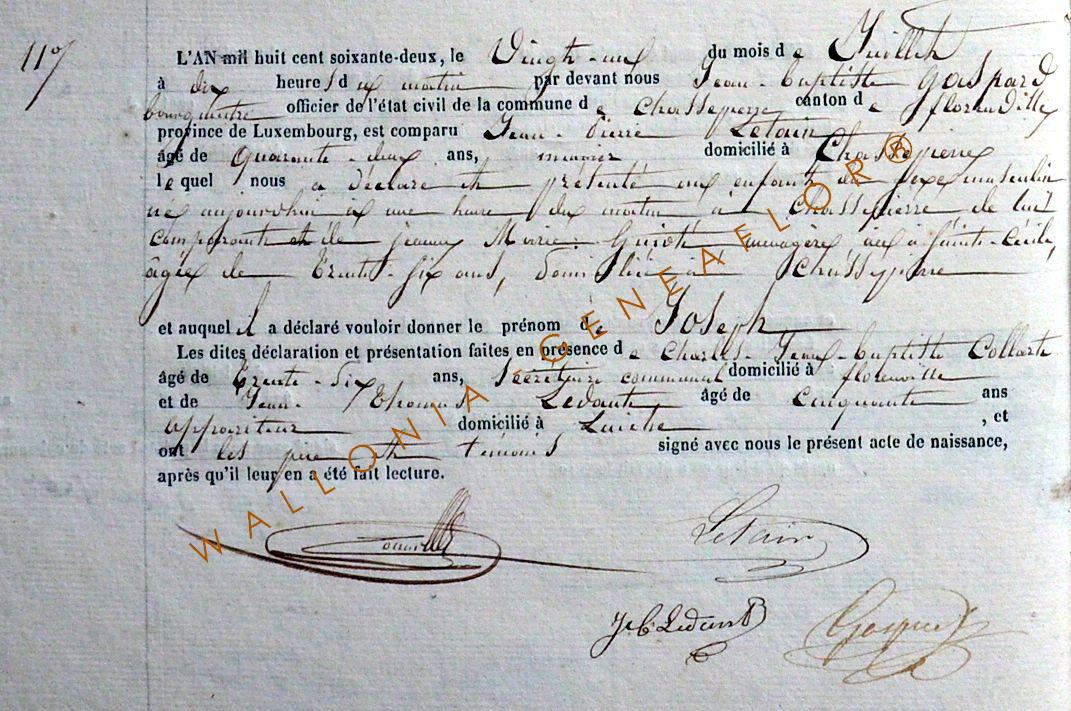 119
L'AN mil huit cent soixante-deux, le Vingt-un du mois de Juillet
à dix heures du matin par devant nous Jean-baptiste Gaspard
bourgmestre officier de l'état civil de la commune de Chassepierre canton de florenville
province de Luxembourg, est comparu Jean-Pierre Letain
âgé de quarante-deux ans, domicilié à Chassepierre
lequel nous a déclaré et présenté un enfant du sexe masculin
né aujourd'hui à une heure du matin à Chassepierre de lui
comparant et de Marie Guioté ménagère, née à Sainte-Cécile,
âgée de Trente-six ans, domiciliée à Chassepierre
et auquel il a déclaré vouloir donner le prénom de Joseph
Les dites déclaration et présentation faites en présence de Charles-Jean-baptiste Collart
âgé de Trente-six ans, Secrétaire communal domicilié à florenville
et de Jean-Thomas Ledante âgé de cinquante ans
appariteur domicilié à Laiche, et
ont les père et témoins signé avec nous le présent acte de naissance,
après qu'il leur en a été fait lecture.
Letain
WALLONIA - GENEAFLOR®